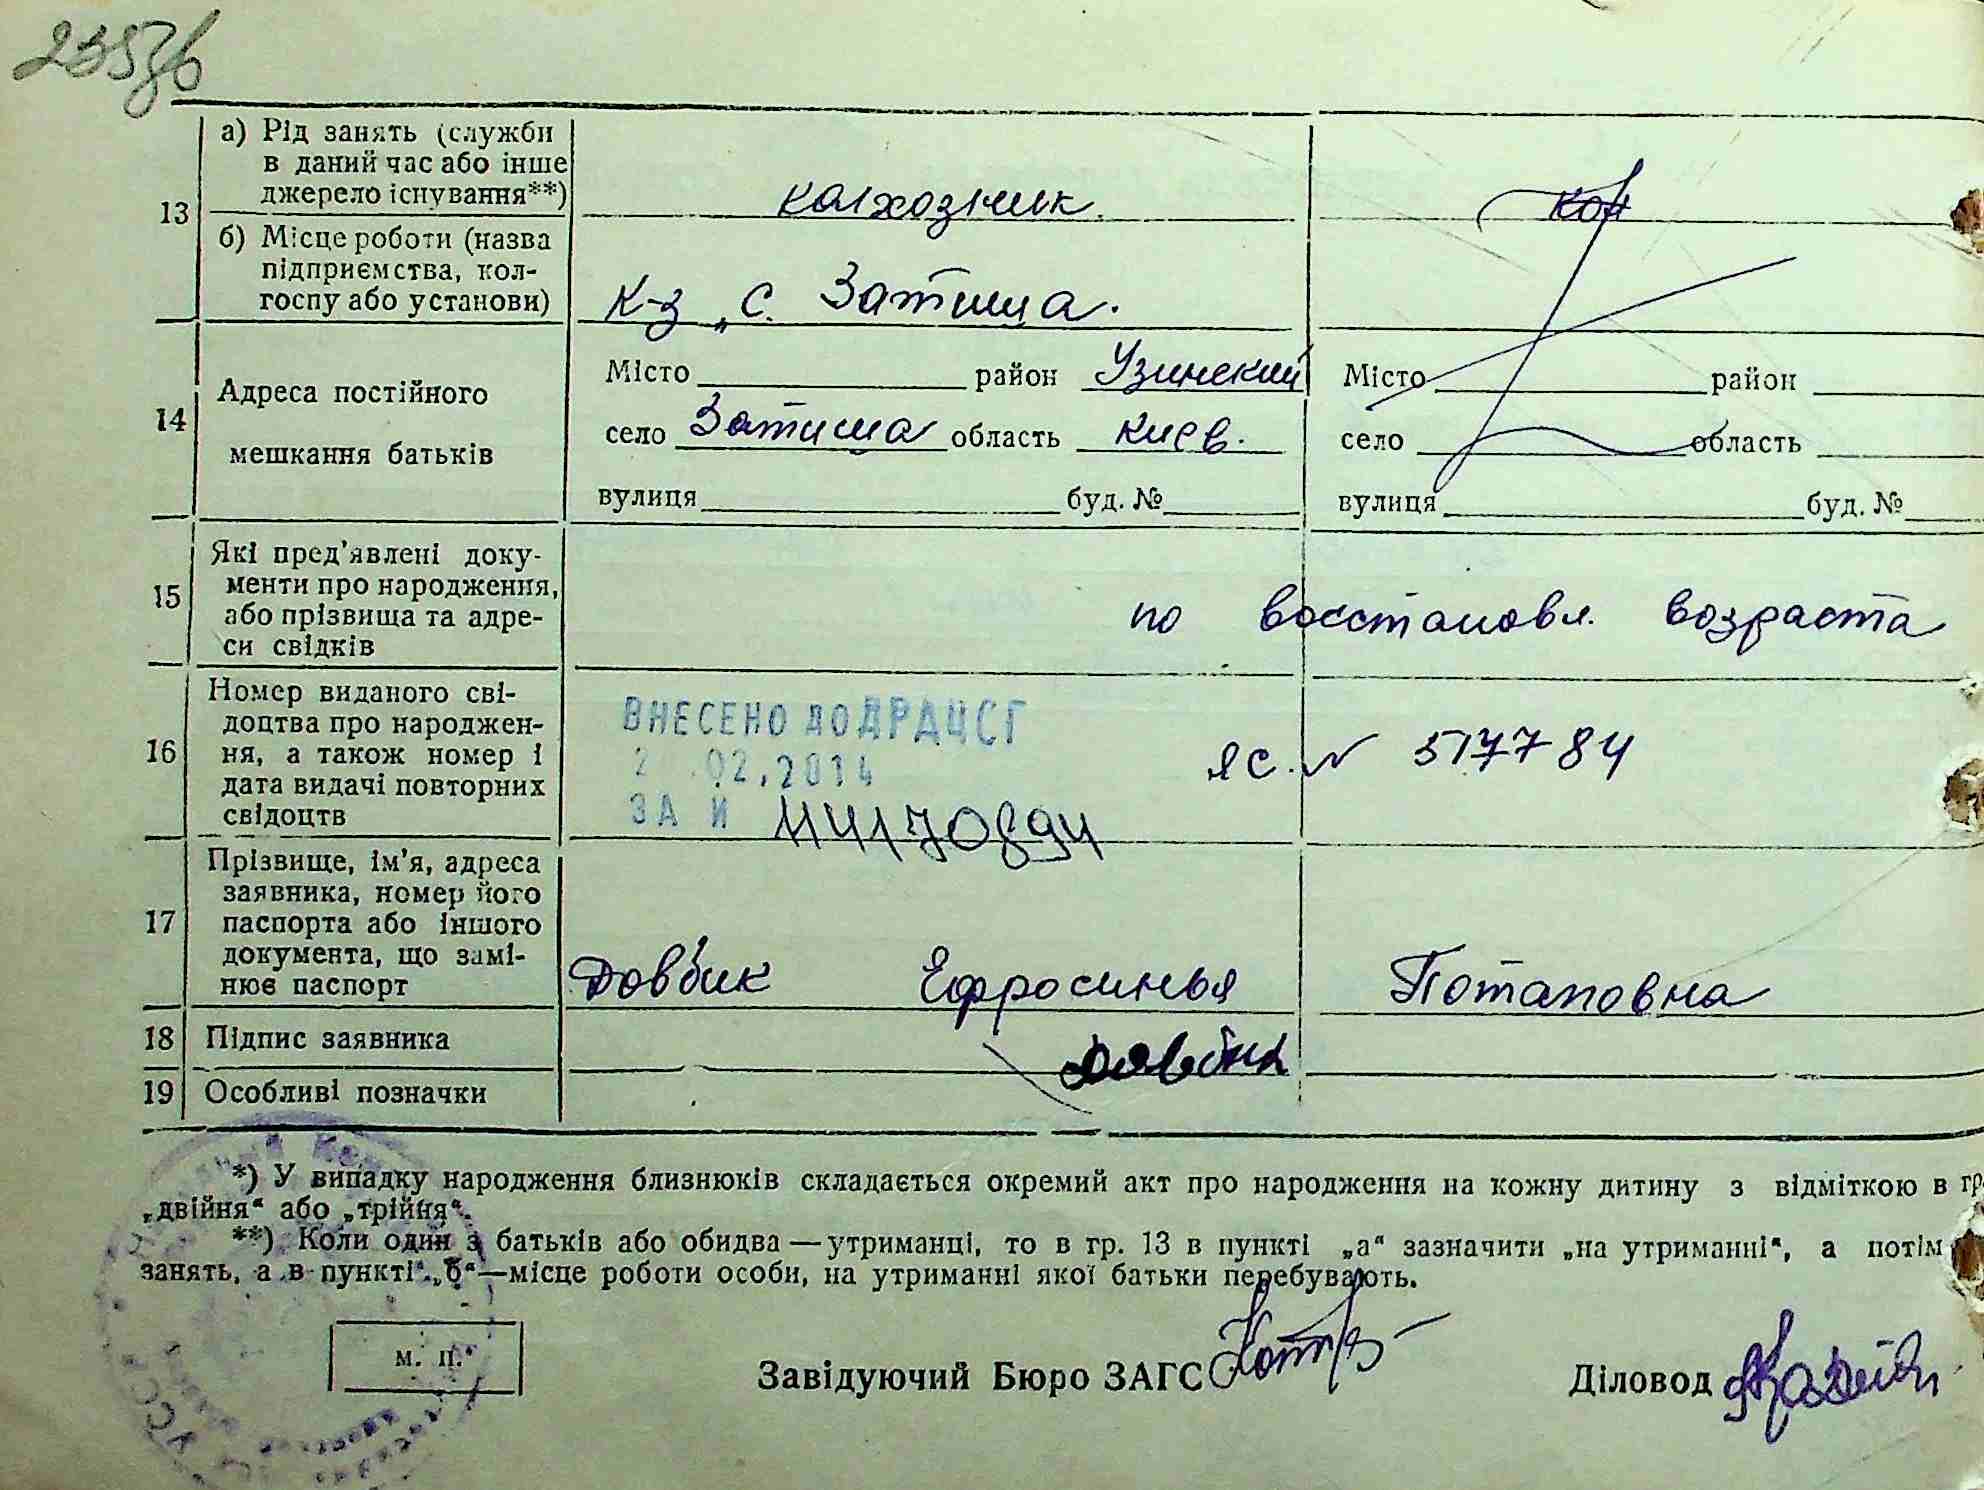 235зв
13 а) Рід занять (служби
в даний час або інше
джерело існування**)
колхозник. кол
б) Місце роботи (назва
підприємства, кол-
госпу або установи)
к-з „С. Затишша.
14 Адреса постійного
мешкання батьків
Місто район Узинский Місто район
село Затишша область Киев. село область
вулиця буд. № вулиця буд. №
15 Які пред’явлені доку-
менти про народження,
або прізвища та адре-
си свідків
по восстановл. возраста
16 Номер виданого сві-
доцтва про народжен-
ня, а також номер і
дата видачі повторних
свідоцтв
ВНЕСЕНО ДО ДРАЦСГ
2 .02.2014
ЗА №
ЯС. № 517784
17 Прізвище, ім’я, адреса
заявника, номер його
паспорта або іншого
документа, що замі-
нює паспорт
Довбик Ефросинья Потаповна
18 Підпис заявника Довбик
19 Особливі позначки
*) У випадку народження близнюків складається окремий акт про народження на кожну дитину з відміткою в гр
„двійня“ або „трійня“.
**) Коли один з батьків або обидва—утриманці, то в гр. 13 в пункті „а“ зазначити „на утриманні“, а потім
занять, а в пункті „б“—місце роботи особи, на утриманні якої батьки перебувають.
м. п.
Завідуючий Бюро ЗАГС Діловод